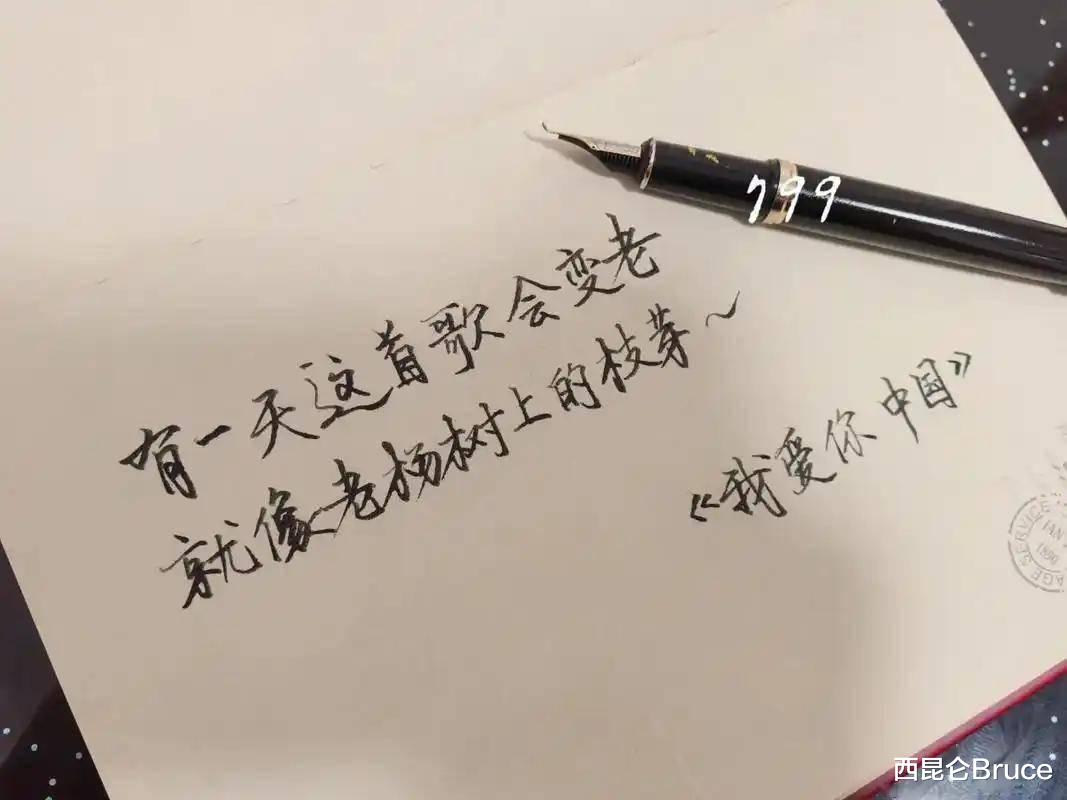 799
有一天这首歌会变老
就像老杨树上的枝芽~
《我爱你中国》
SERVICE
JAN
1890
西昆仑Bruce